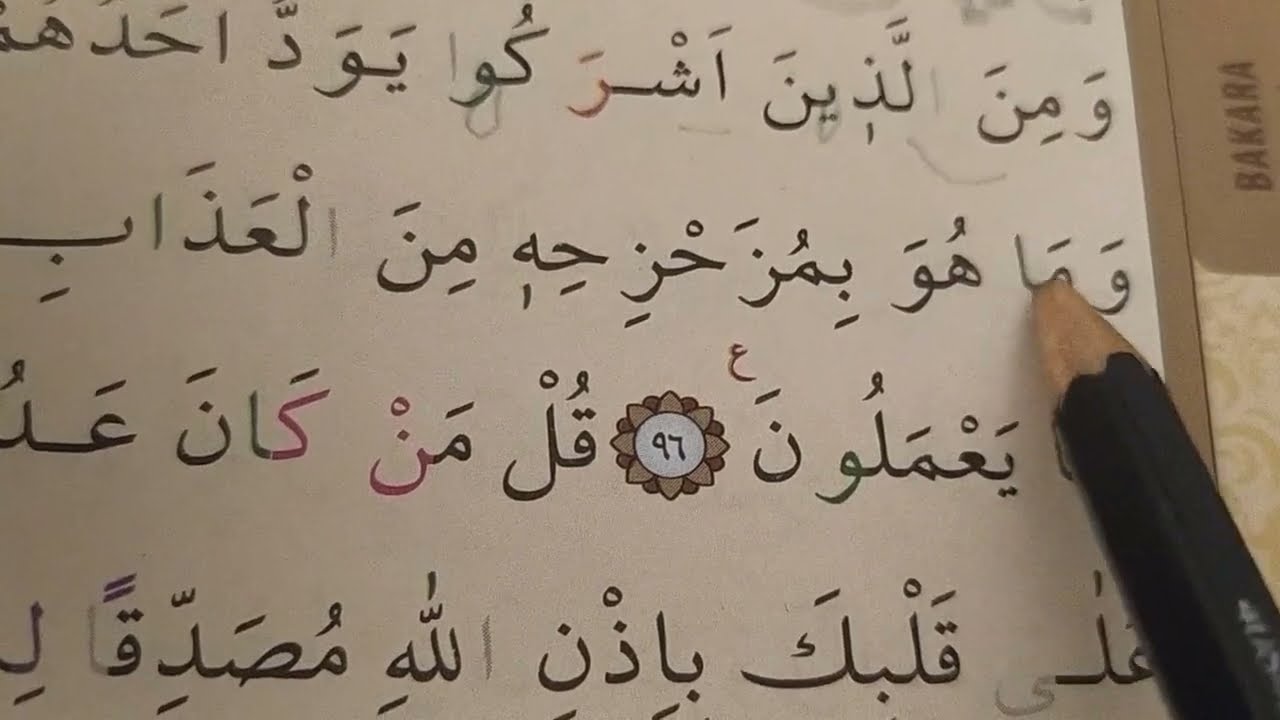 وَمِنَ الَّذ۪ينَ اَشْرَكُوا يَوَدُّ اَحَدُهُمْ
وَمَا هُوَ بِمُزَحْزِحِه۪ مِنَ الْعَذَابِ
يَعْمَلُونَ ع ٩٦ قُلْ مَنْ كَانَ
عَلٰى قَلْبِكَ بِاِذْنِ اللّٰهِ مُصَدِّقًا
BAKARA